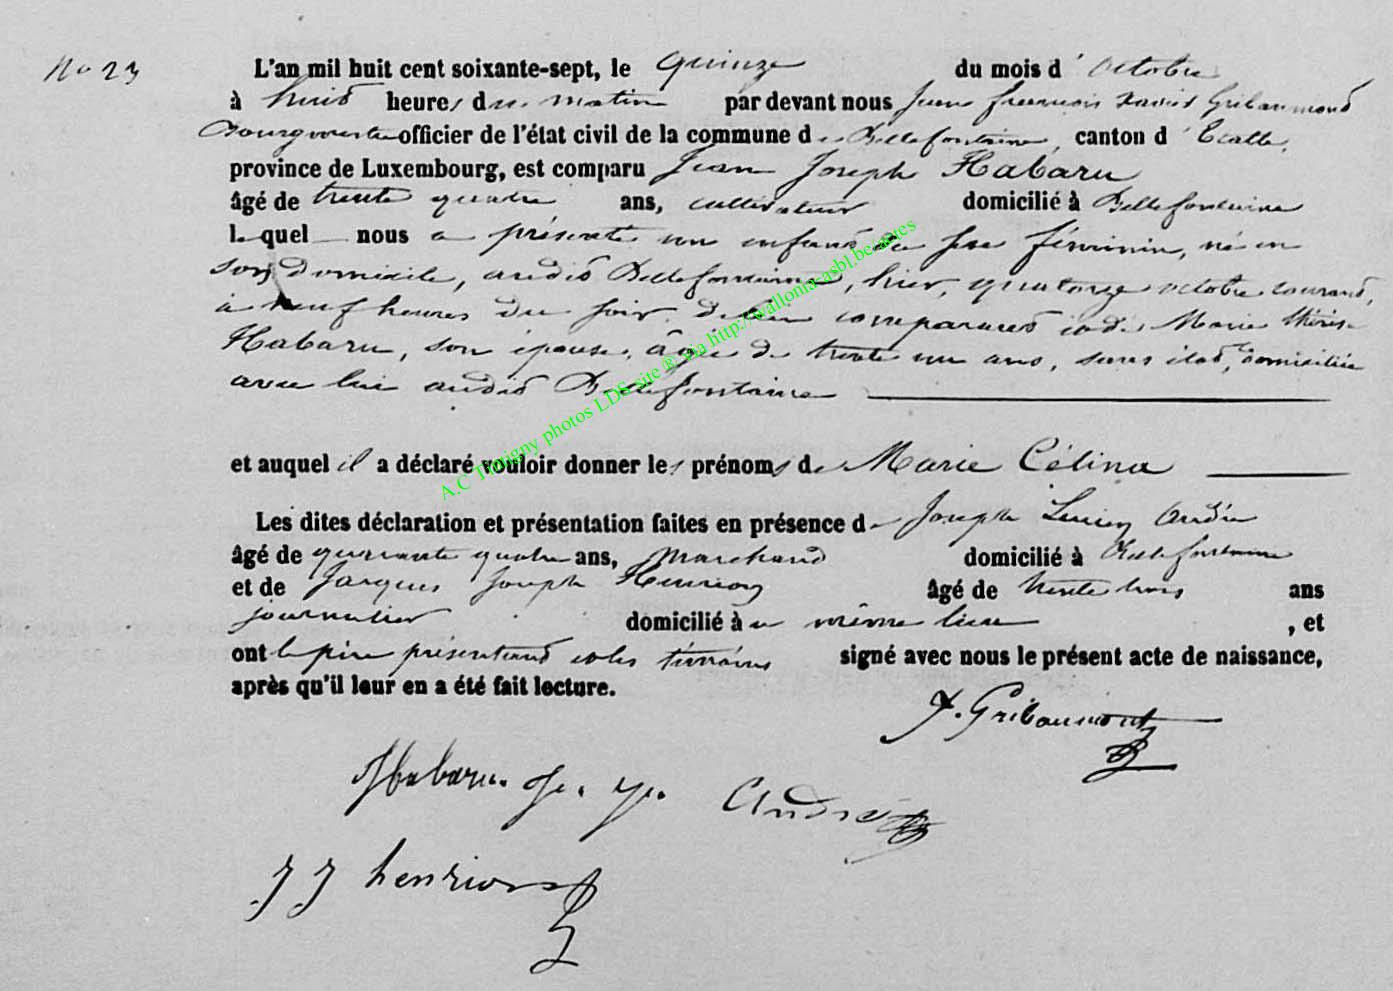 No 23
L'an mil huit cent soixante-sept, le quinze du mois d'octobre
à huit heures du matin par devant nous Jean François Xavier Gribaumont
Bourgmestre officier de l'état civil de la commune de Bellefontaine, canton d'Etalle,
province de Luxembourg, est comparu Jean Joseph Habaru
âgé de trente quatre ans, cultivateur domicilié à Bellefontaine
lequel nous a présenté un enfant du sexe féminin, né en
son domicile, audit Bellefontaine, hier, quatorze octobre courant,
à neuf heures du soir, de lui comparant et de Marie Thérèse
Habaru, son épouse, âgée de trente un ans, sans état, domiciliée
avec lui audit Bellefontaine
et auquel il a déclaré vouloir donner les prénoms de Marie Célina
Les dites déclaration et présentation faites en présence de Joseph Lucien André
âgé de quarante quatre ans, marchand domicilié à Bellefontaine
et de Jacques Joseph Henrion âgé de trente trois ans
journalier domicilié à u même lieu, et
ont le père présentant et les témoins signé avec nous le présent acte de naissance,
après qu'il leur en a été fait lecture.
A.C Tintigny photos LDS site ® via http://walloniasasbl.be/actes
X. Gribaumont
Habaru. J. J. André
J J henrion